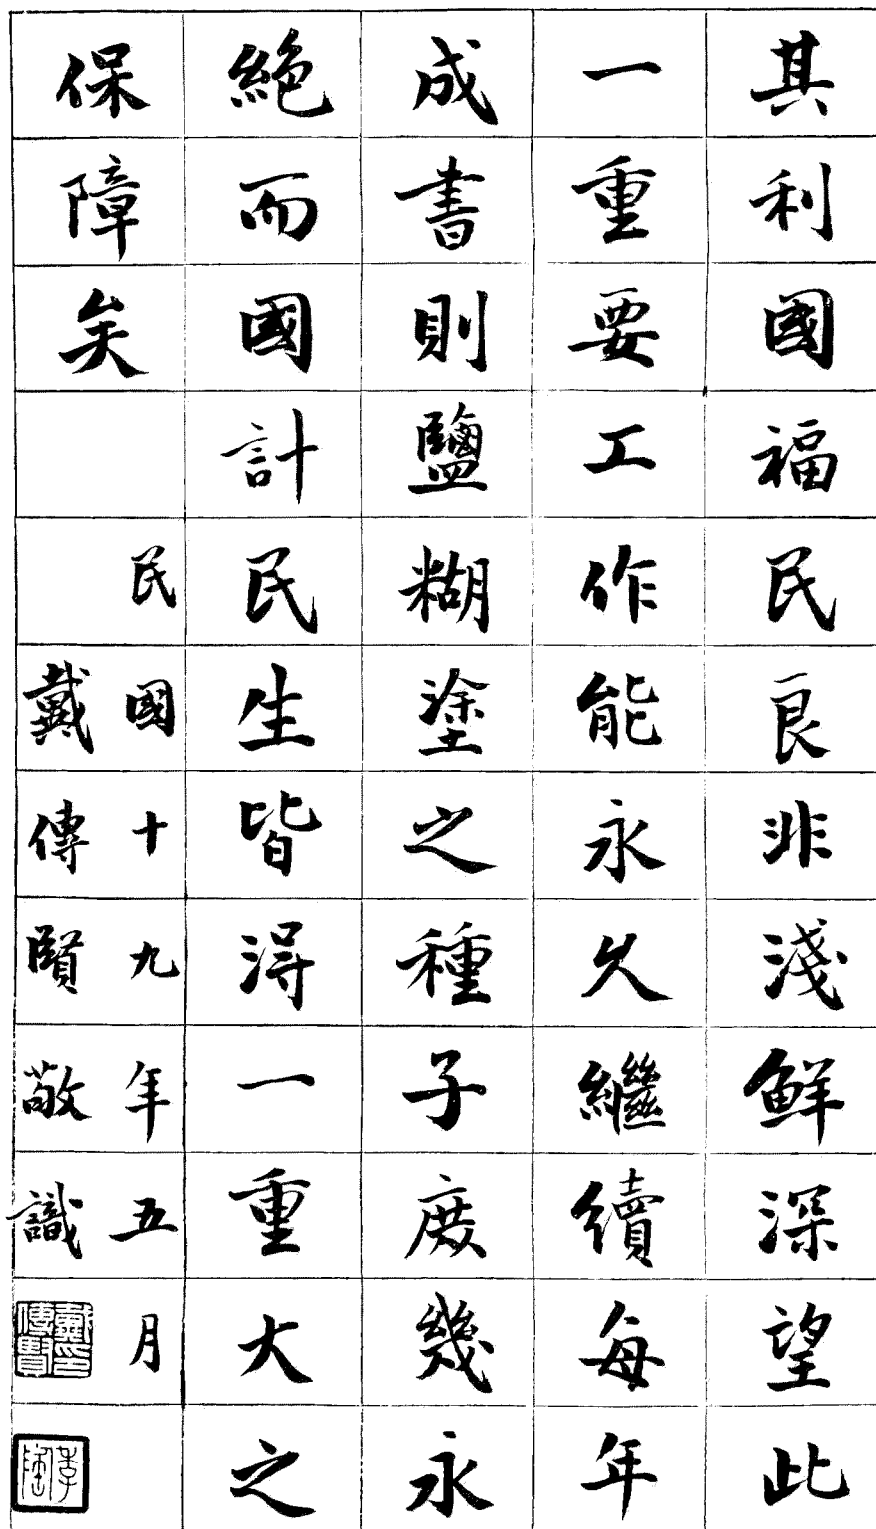 其利國福民良非淺鮮深望此
一重要工作能永久繼續每年
成書則鹽糊塗之種子庶幾永
絕而國計民生皆得一重大之
保障矣
民國十九年五月
戴傳賢敬識
戴傳賢印
季陶